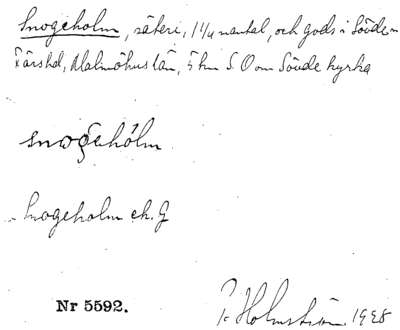 Snogeholm, säteri, 1 1/4 mantal, och gods i Sövde-
Färshd, Malmöhus län, 5 km S.O om Sövde kyrka
Snogeholm ek. G
Nr 5592.
Holmström 1928